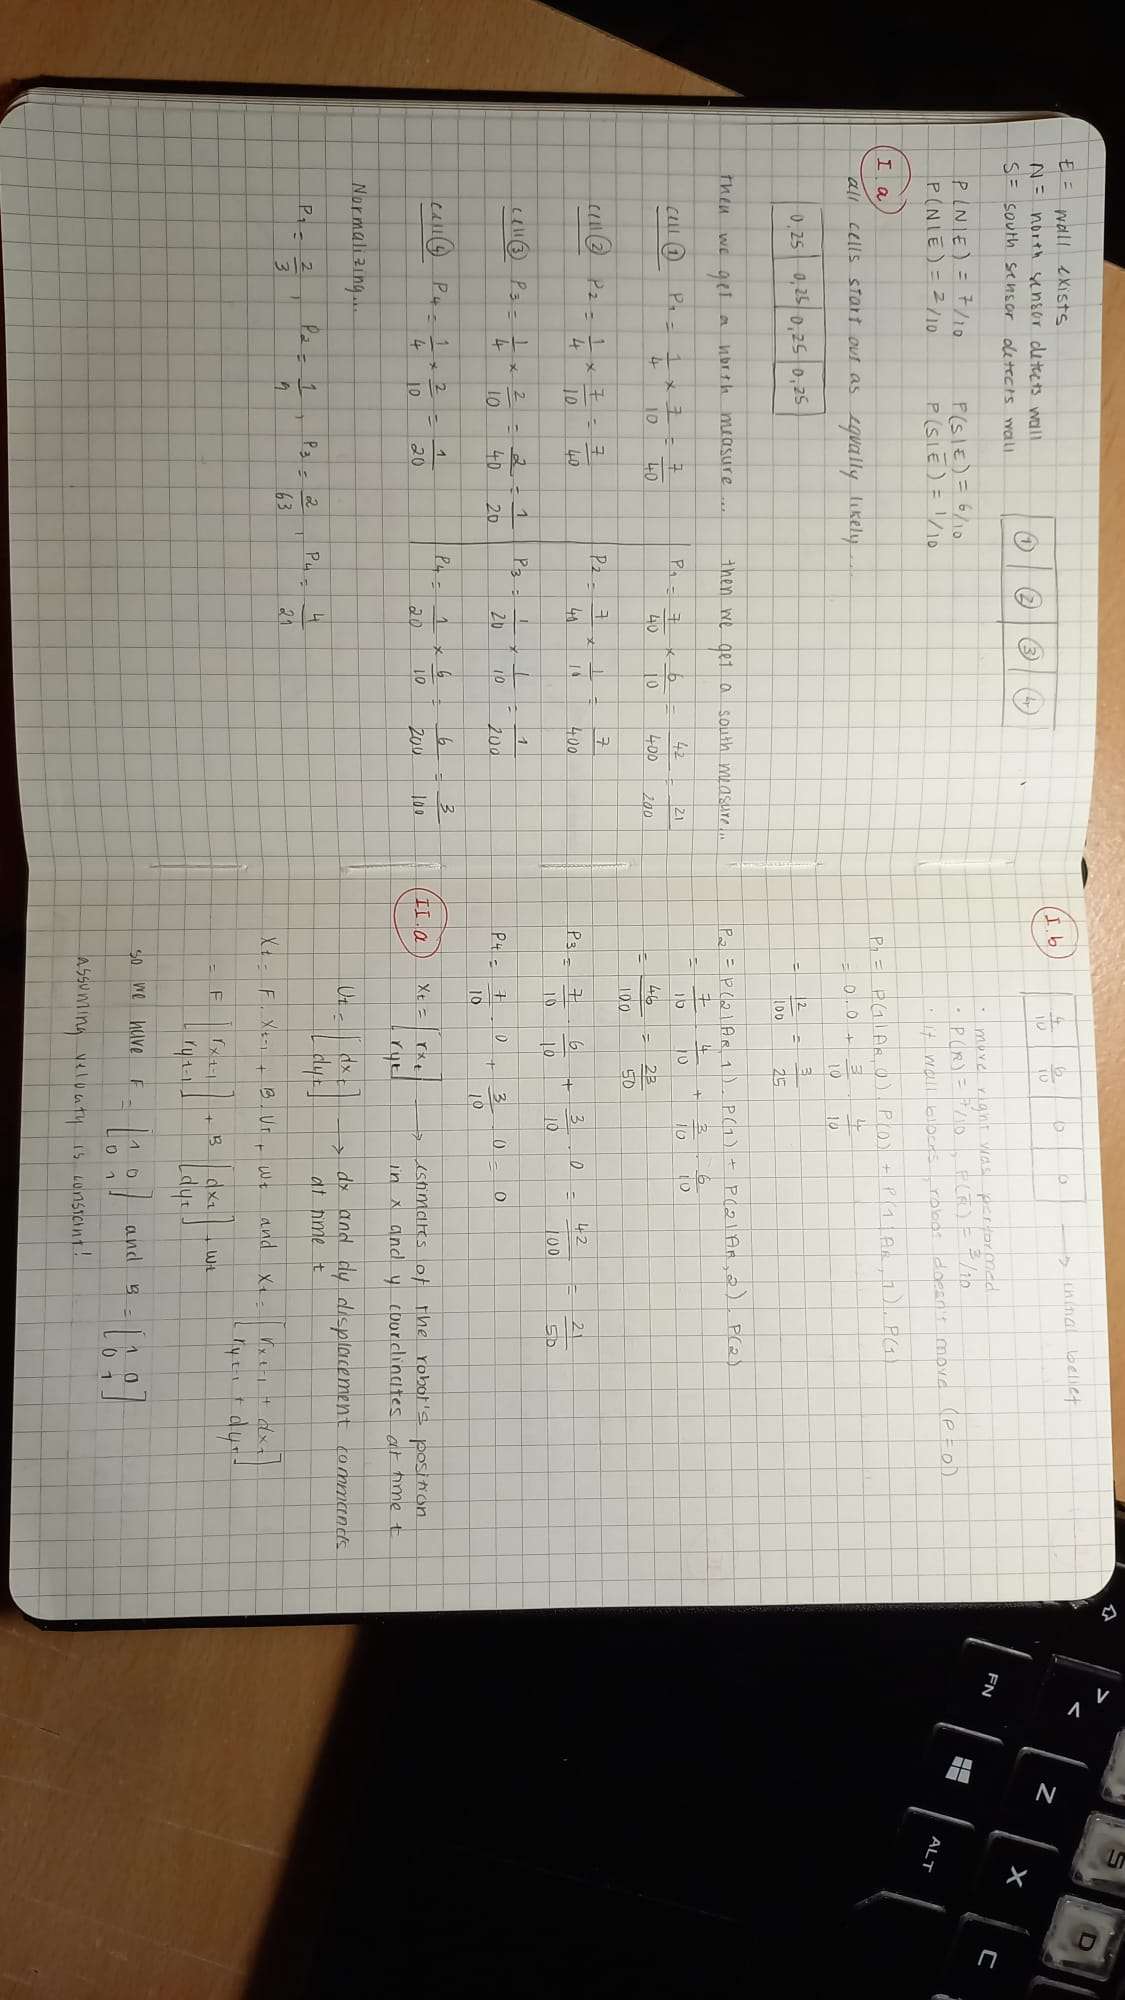 E = wall exists
N = north sensor detects wall
S = south sensor detects wall
① ② ③ ④
P(N|E) = 7/10 P(S|E) = 6/10
P(N|E̅) = 2/10 P(S|E̅) = 1/10
I.a
all cells start out as equally likely...
0,25 0,25 0,25 0,25
then we get a north measure... then we get a south measure...
cell ① P₁ = 1/4 × 7/10 = 7/40 P₁ = 7/40 × 6/10 = 42/400 = 21/200
cell ② P₂ = 1/4 × 7/10 = 7/40 P₂ = 7/40 × 1/10 = 7/400
cell ③ P₃ = 1/4 × 2/10 = 2/40 = 1/20 P₃ = 1/20 × 1/10 = 1/200
cell ④ P₄ = 1/4 × 2/10 = 1/20 P₄ = 1/20 × 6/10 = 6/200 = 3/100
Normalizing...
P₁ = 2/3, P₂ = 1/9, P₃ = 2/63, P₄ = 4/21
I.b
4/10 6/10 0 0 → initial belief
• move right was performed
• P(R) = 7/10, P(R̅) = 3/10
• if wall blocks, robot doesn't move (P=0)
P₁ = P(1|AR,0).P(0) + P(1|AR,1).P(1)
= 0.0 + 3/10 . 4/10
= 12/100 = 3/25
P₂ = P(2|AR,1).P(1) + P(2|AR,2).P(2)
= 7/10 . 4/10 + 3/10 . 6/10
= 46/100 = 23/50
P₃ = 7/10 . 6/10 + 3/10 . 0 = 42/100 = 21/50
P₄ = 7/10 . 0 + 3/10 . 0 = 0
II.a
Xt = [rxt ryt] → estimates of the robot's position
in x and y coordinates at time t
Ut = [dxt dyt] → dx and dy displacement commands
at time t
Xt = F. Xt-1 + B. Ut + wt and Xt = [rxt-1 + dxt ryt-1 + dyt]
= F [rxt-1 ryt-1] + B [dxt dyt] + wt
so we have F = [1 0 0 1] and B = [1 0 0 1]
assuming velocity is constant!
FN
ALT
Z
X
C
S
D